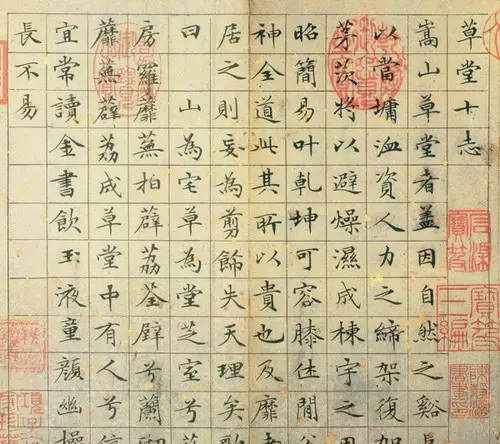 草堂十志
嵩山草堂者盖因自然之谿
以當墉洫資人力之締架復加
茅茨将以避燥濕成棟宇之用
昭簡易叶乾坤可容膝休閒谷
神全道此其所以貴也及靡者
居之則妄為剪飾失天理矣歌
曰 山為宅草為堂芝室兮
房羅蘼蕪柏薜荔荃壁兮蘭砌
蘼蕪薜荔成草堂中有人兮信
宜常讀金書飲玉液童顏幽操
長不易